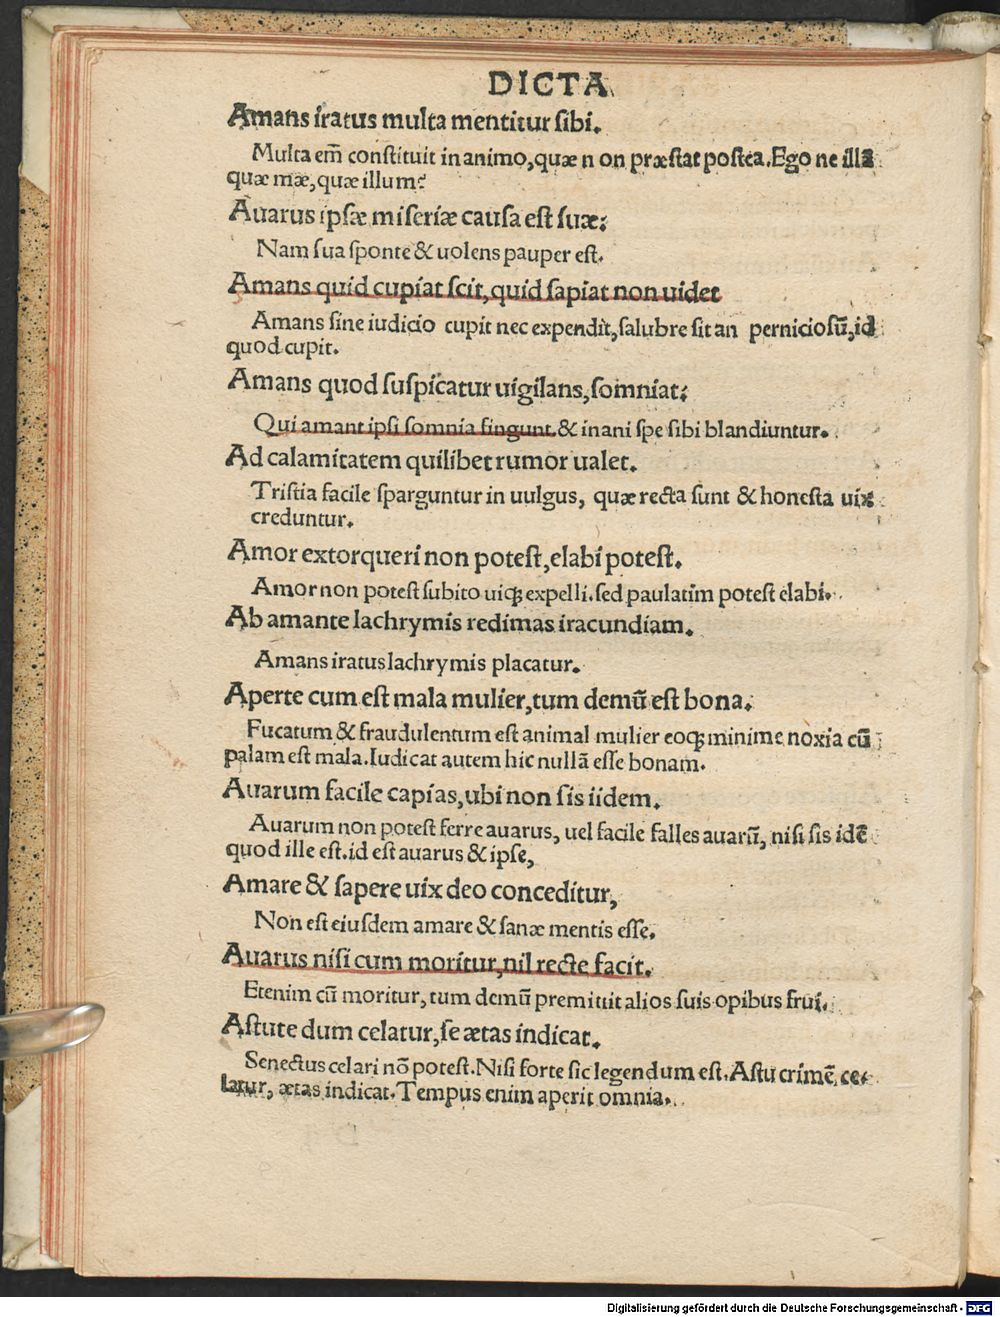 DICTA
Amans iratus multa mentitur sibi.
Multa em̃ constituit in animo, quæ n on præstat postea. Ego ne illã
quæ mæ, quæ illum?
Auarus ipsæ miseriæ causa est suæ:
Nam sua sponte & uolens pauper est.
Amans quid cupiat scit, quid sapiat non uidet
Amans sine iudicio cupit nec expendit, salubre sit an perniciosũ, id
quod cupit.
Amans quod suspicatur uigilans, somniat:
Qui amant ipsi somnia fingunt. & inani spe sibi blandiuntur.
Ad calamitatem quilibet rumor ualet.
Tristia facile sparguntur in uulgus, quæ recta sunt & honesta uix
creduntur.
Amor extorqueri non potest, elabi potest.
Amor non potest subito uiqꝫ expelli. sed paulatim potest elabi.
Ab amante lachrymis redimas iracundiam.
Amans iratus lachrymis placatur.
Aperte cum est mala mulier, tum demũ est bona.
Fucatum & fraudulentum est animal mulier eoqꝫ minime noxia cũ
palam est mala. Iudicat autem hic nullã esse bonam.
Auarum facile capias, ubi non sis iidem.
Auarum non potest ferre auarus, uel facile falles auarũ, nisi sis idẽ
quod ille est. id est auarus & ipse,
Amare & sapere uix deo conceditur,
Non est eiusdem amare & sanæ mentis esse.
Auarus nisi cum moritur, nil recte facit.
Etenim cũ moritur, tum demũ premittit alios suis opibus frui.
Astute dum celatur, se ætas indicat.
Senectus celari nõ potest. Nisi forte sic legendum est. Astu crimẽ ce-
latur, ætas indicat. Tempus enim aperit omnia.
Digitalisierung gefördert durch die Deutsche Forschungsgemeinschaft - DFG